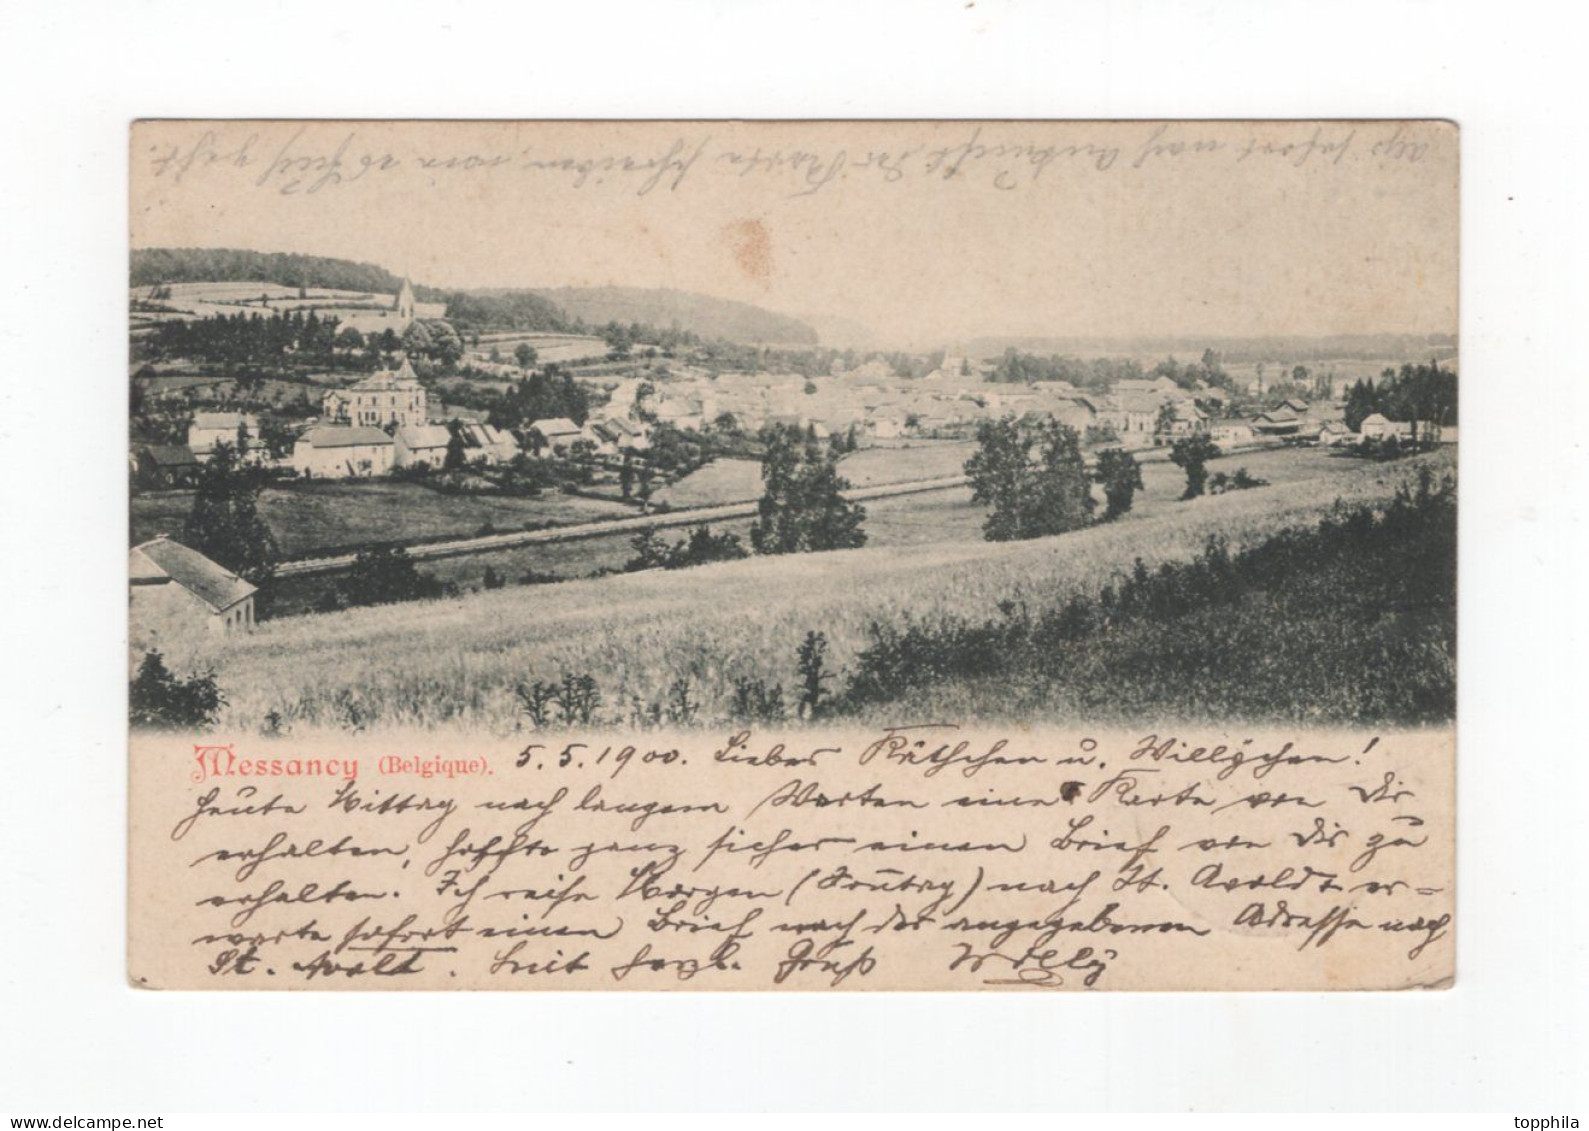 also sofort nach Ankunft der Karte schreiben, wie es Euch geht.
Messancy (Belgique). 5. 5. 1900. Liebes Käthchen u. Willychen!
heute Mittag nach langem Warten eine Karte von Dir
erhalten, hoffte ganz sicher einen Brief von Dir zu
erhalten. Ich reise Morgen (Sonntag) nach St. Avold & er=
warte sofort einen Brief nach der angegebenen Adresse nach
St. Avold. Mit herzl. Gruß Willy
www.delcampe.net
topphila